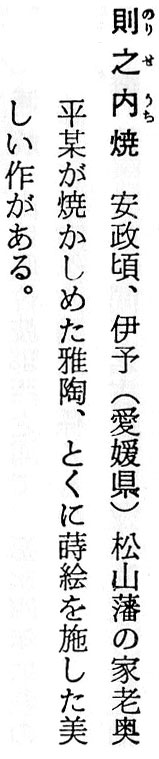 則之内焼　安政頃、伊予（愛媛県）松山藩の家老奥
平某が焼かしめた雅陶、とくに蒔絵を施した美
しい作がある。
のりせうち